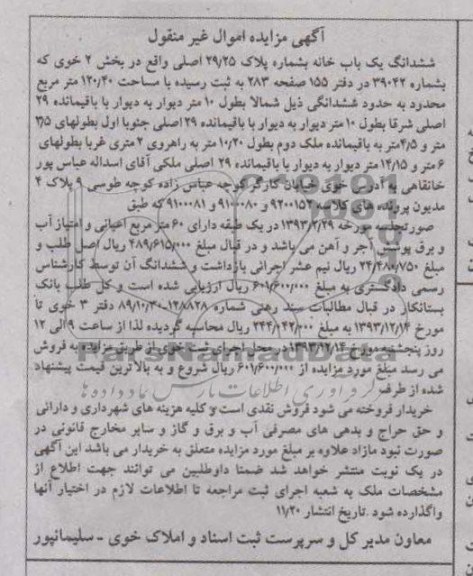 آگهی مزایده اموال غیر منقول
ششدانگ یک باب خانه بشماره پلاک ۲۹/۲۵ اصلی واقع در بخش ۲ خوی که
بشماره ۳۹۰۴۲ در دفتر ۱۵۵ صفحه ۲۸۳ به ثبت رسیده با مساحت ۱۲۰/۴۰ متر مربع
محدود به حدود ششدانگی ذیل شمالا بطول ۱۰ متر دیوار به دیوار با باقیمانده ۲۹
اصلی شرقا بطول ۱۰ متر دیوار به دیوار با باقیمانده ۲۹ اصلی جنوبا اول بطولهای ۲/۵
متر و ۴/۵متر به باقیمانده ملک دوم بطول ۱۰/۲۰ متر به راهروی ۲ متری غربا بطولهای
۶ متر و ۱۴/۱۵متر دیوار به دیوار با باقیمانده ۲۹ اصلی ملکی آقای اسداله عباس پور
خانقاهی به آدرس خوی خیابان کارگر کوچه عباس زاده کوچه طوسی ۹ پلاک ۴
مدیون پرونده های کلاسه ۹۲۰۰۱۵۲ و ۹۱۰۰۰۸۰ و ۹۱۰۰۰۸۱ که طبق
صورتجلسه مورخه ۱۳۹۳/۲/۲۹ در یک طبقه دارای ۶۰ متر مربع اعیانی و امتیاز آب
و برق پوشش آجر و آهن می باشد و در قبال مبلغ ۴۸۹/۶۱۵/۰۰۰ ریال اصل طلب و
مبلغ ۲۴/۴۸۰/۷۵۰ ریال نیم عشر اجرائی بازداشت و ششدانگ آن توسط کارشناس
رسمی دادگستری به مبلغ ۶۰۱/۶۰۰/۰۰۰ ریال ارزیابی شده است و کل طلب بانک
بستانکار در قبال مطالبات سند رهنی شماره ۱۲۸۸۲۸-۸۹/۱۰/۳۰ دفتر ۳ خوی تا
مورخ ۱۳۹۳/۱۲/۱۴ به مبلغ ۲۴۴/۰۴۲/۰۰۰ ریال محاسبه گردیده لذا از ساعت ۹ الی ۱۲
روز پنجشنبه مورخ ۱۳۹۳/۱۲/۱۴ در محل اجرای ثبت خوی از طریق مزایده به فروش
می رسد مبلغ مورد مزایده از ۶۰۱/۶۰۰/۰۰۰ ریال شروع و به بالاترین قیمت پیشنهاد
شده از طرف
خریدار فروخته می شود فروش نقدی است و کلیه هزینه های شهرداری و دارائی
و حق حراج و بدهی های مصرفی آب و برق و گاز و سایر مخارج قانونی در
صورت نبود مازاد علاوه بر مبلغ مورد مزایده متعلق به خریدار می باشد این آگهی
در یک نوبت منتشر خواهد شد ضمنا داوطلبین می توانند جهت اطلاع از
مشخصات ملک به شعبه اجرای ثبت مراجعه تا اطلاعات لازم در اختیار آنها
واگذارده شود .تاریخ انتشار ۱۱/۲۰
معاون مدیر کل و سرپرست ثبت اسناد و املاک خوی - سلیمانپور
ParsNamadData